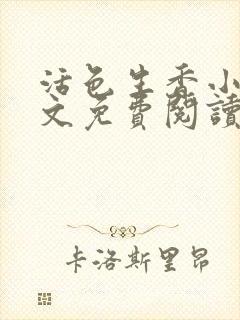 活色生香小
文免費閱讀
卡洛斯里昂